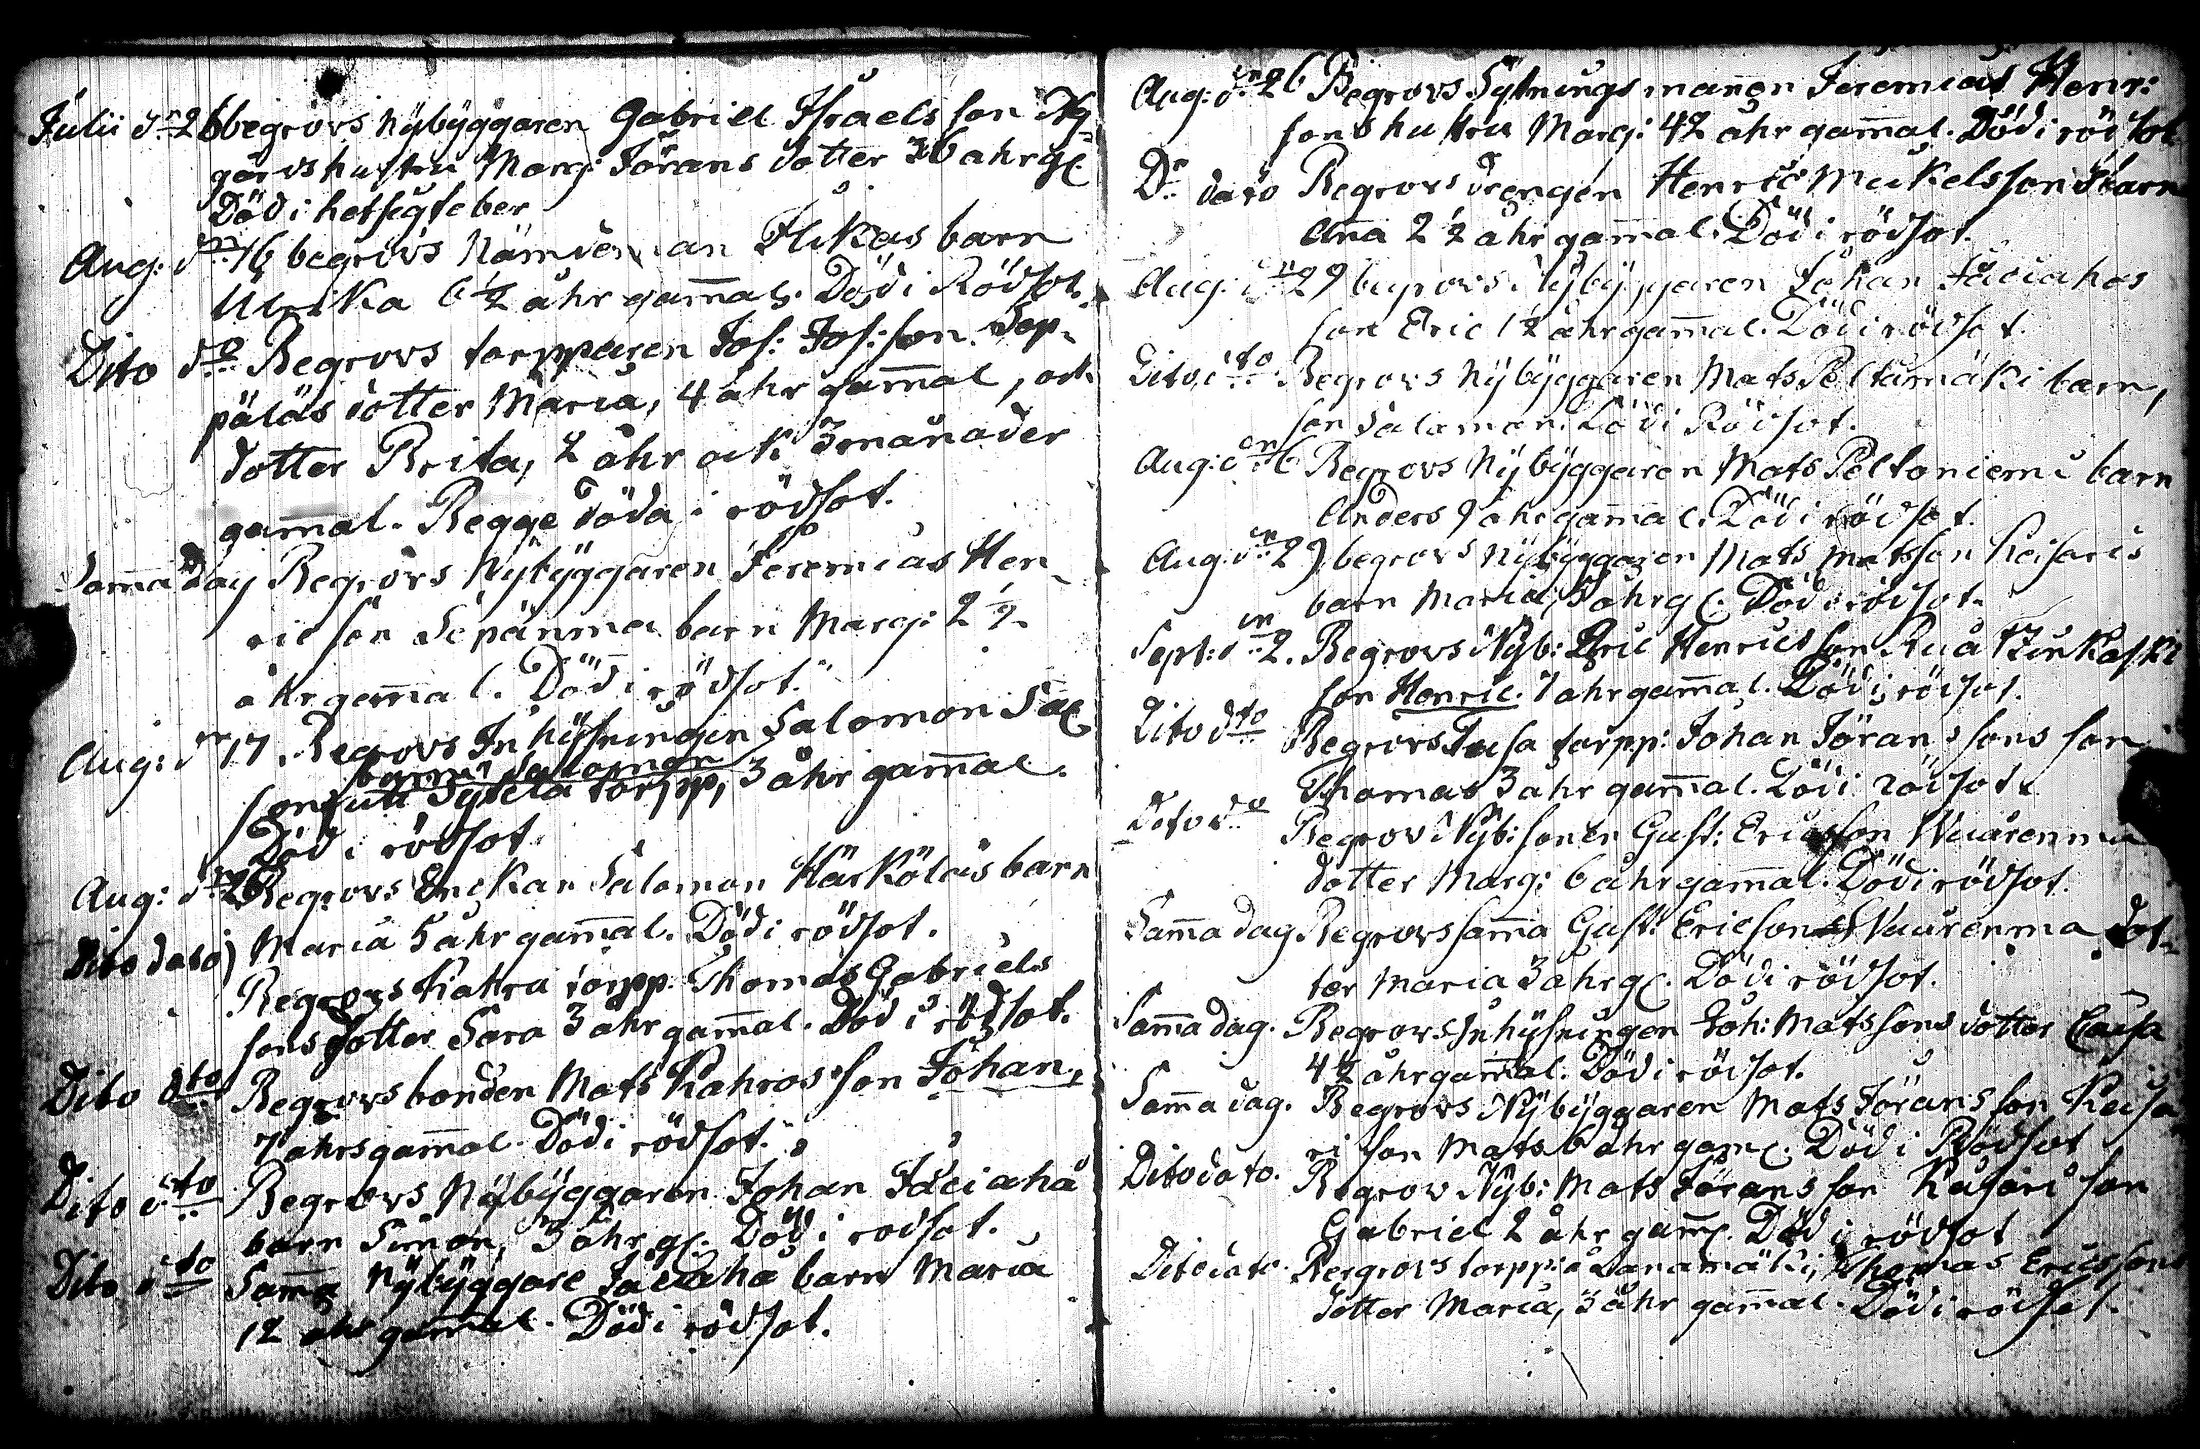 Julii d:n 26 begrovs nybyggaren Gabriel Israels son Ny-
gårds hustru Marg: Jörans dotter 36 åhr gl.
Död i hetsig feber
Aug: d:n 16 begrovs Nämdeman Ilikas barn
Ulrika 6 1/2 åhr gam̄al. Död i Rödsot.
Dito d:o Begrovs torpparen Jos: Jos: son Sep-
päläs dotter Maria, 4 åhr gam̄al, ock
dotter Brita, 2 åhr ock 3 månader
gam̄al. Begge döda i rödsot.
Sam̄a dag Begrovs Nybyggaren Jeremias Hen-
ric son Sepänma barn Marg: 2 1/2
åhr gam̄al. Död i rödsot.
Aug: d:n 17. Begrovs Inhysningen Salomon
barn Salomon
son Sytela torpp, 3 åhr gam̄al.
Död i rödsot
Aug: d:n 26 Begrovs Enckan Salomon Härköläs barn
Maria 5 åhr gam̄al. Död i rödsot.
Dito dato Begrovs Kahra torpp: Thomas Gabriels
sons dotter Sara 3 åhr gam̄al. Död i rödsot.
Dito d:to Begrovs bonden Mats Kahras son Johan,
7 åhrs gam̄al. Död i rödsot.
Dito d:to Begrovs Nybyggaren Johan Jäciaho
barn Simon, 3 åhr gl. Död i rödsot.
Dito d:to Sam̄a Nybyggare Jäciaho barn Maria
12 åhr gam̄al. Död i rödsot.
Aug: d:n 26 Begrovs Sytnings man̄en Jeremias Henr:
sons hustru Marg: 42 åhr gam̄al. Död i rödsot
D:o dato Begrovs drengen Henric Mickelsson barn
An̄a 2 1/2 åhr gam̄al. Död i rödsot.
Aug: d:n 29 begrovs Nybyggaren Johan Jäciahos
son Eric 1 1/2 åhr gam̄al. Död i rödsot.
Dito d:to Begrovs Nybyggaren Mats Peltamäki barn,
son Salomon. Död i Rödsot.
Aug: d:n 16 Begrovs Nybyggaren Mats Peltoniemi barn
Anders 9 åhr gam̄al. Död i rödsot.
Aug: d:n 29 begrovs nybyggaren Mats Matsson Keisaris
barn Maria, 3 åhr gl. Död i rödsot.
Sept: d:n 2. Begrovs Nyb: Eric Henricsson
son Henric. 7 åhr gam̄al. Död i rödsot.
Dito d:to Begrovs torpp: Johan Jörans sons son
Thomas 3 åhr gam̄al. Död i rödsot.
Dito d:o Begrov Nyb: sonen Gust: Ericsson Waarenma
dotter Marg: 6 åhr gam̄al. Död i rödsot.
Sam̄a dag Begrovs sam̄a Gust: Ericson Waarenma dot-
ter Maria 3 åhr gl. Död i rödsot.
Sam̄a dag. Begrovs Inhysningen Joh: Matssons dotter Caisa
4 1/2 åhr gam̄al. Död i rödsot.
Sam̄a dag. Begrovs Nybyggaren Mats Jörans son Keisa
ri son Mats 6 åhr gaml. Död i Rödsot
Dito dato. Begrov Nyb: Mats Jörans son son
Gabriel 2 åhr gaml. Död i rödsot
Dito dato. Begrovs torpp: å Lanamäki, Thomas Ericssons
dotter Maria, 3 åhr gam̄al. Död i rödsot.